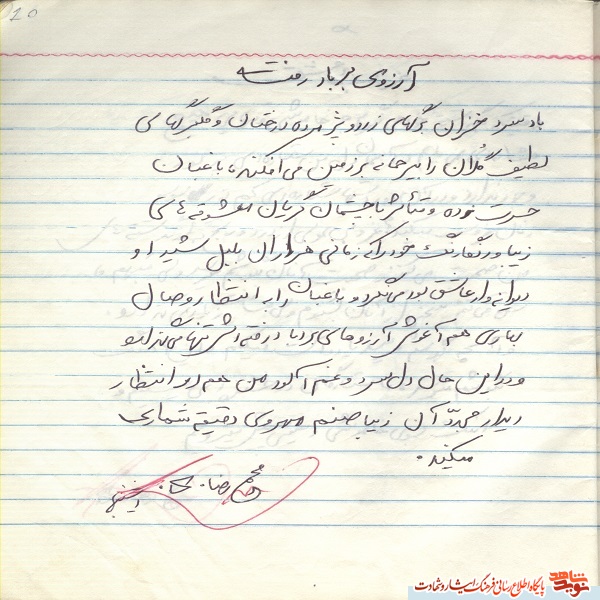 20
آرزوی بر باد رفته
باد سرد خزان برگهای زرد و پژمرده درختان و گلبرگهای
لطیف گلان را بیرحمانه بر زمین می افکند، باغبان
حسرت زده و متأثر با چشمان گریان معشوقه های
زیبا و رنگارنگ خود را که زمانی هزاران بلبل شیدا و
دیوانه وار عاشق بود می نگرد و باغبان را به انتظار وصال
بهاری هم آغوش آرزوهای بر باد رفته اش تنها می گذارد
و در این حال دل سرد و غم آلود من هم در انتظار
دیدار مجدد آن زیبا صنم مهروی دقیقه شماری
میکند.
محمد رضا
شاهد
نوید
پایگاه اطلاع رسانی فرهنگ ایثار و شهادت